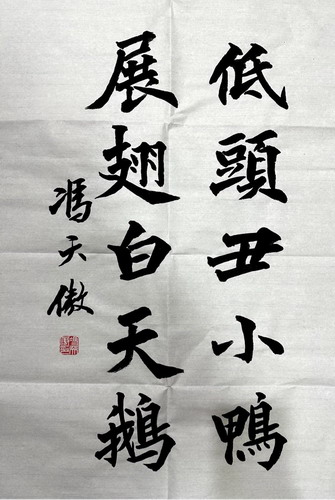 低頭丑小鴨
展翅白天鵝
馮天傲